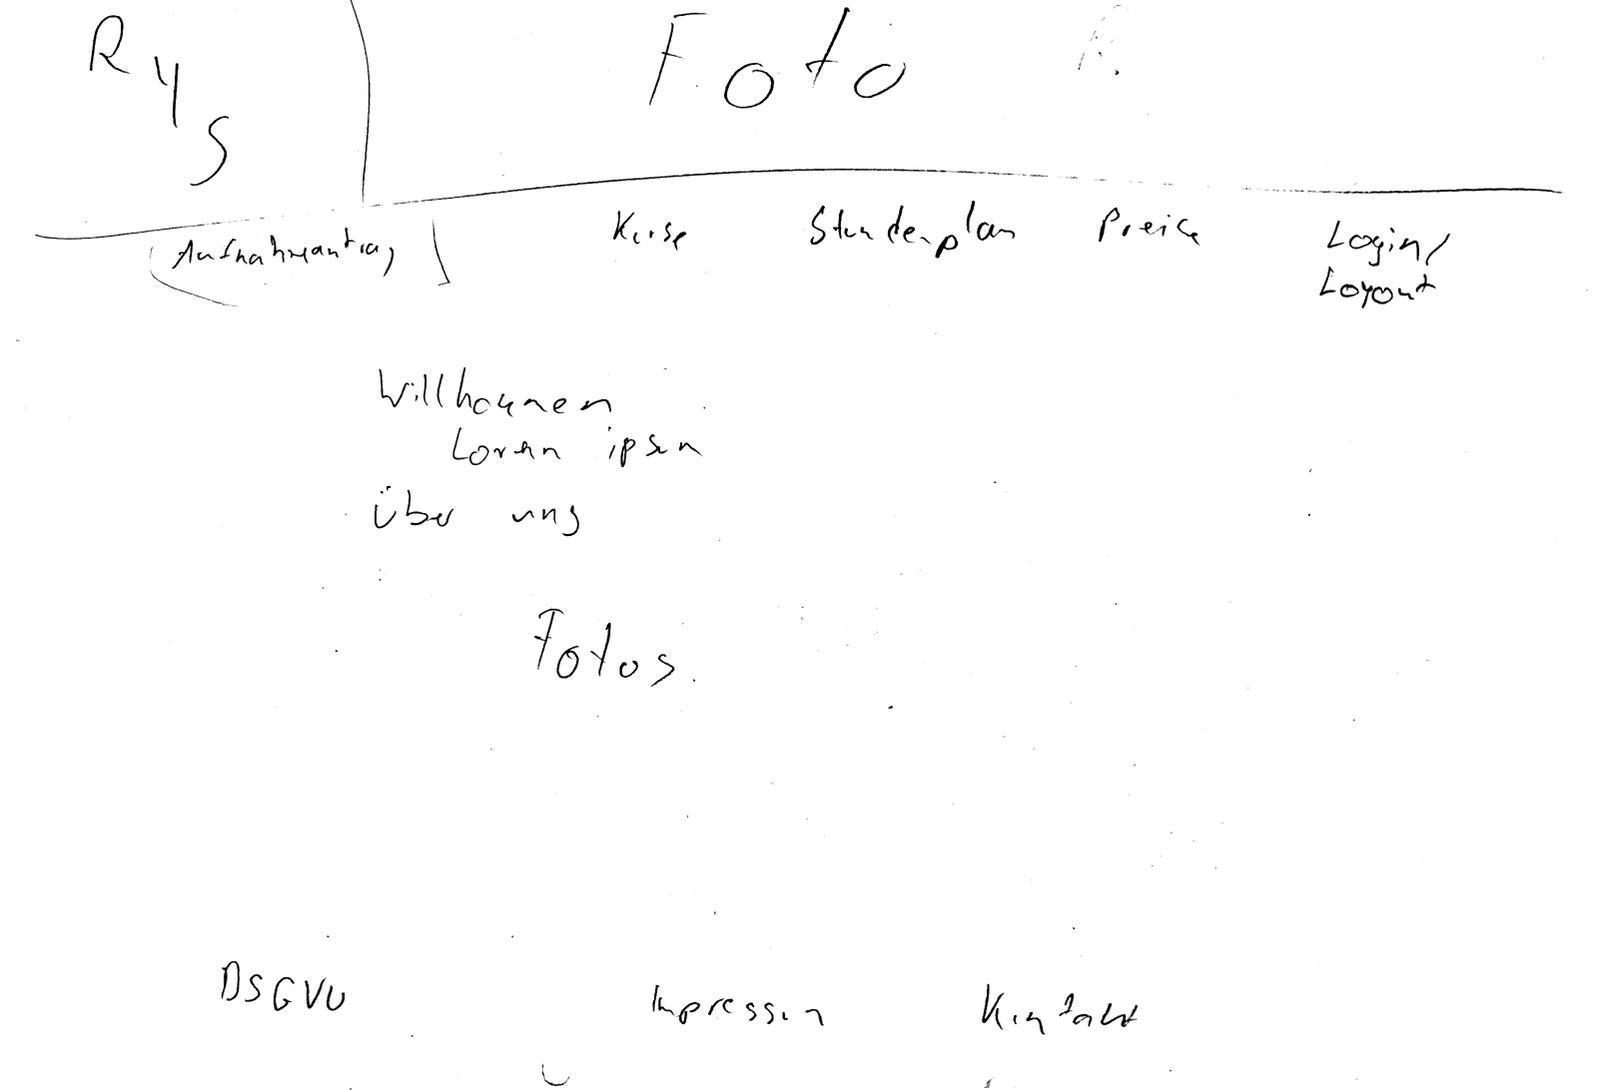 Rys
Foto
(Aufnahmeantrag) Kurse Stundenplan Preise Login/
Logout
Willkommen
Lorem ipsum
Über uns
Fotos
DSGVO Impressum Kontakt